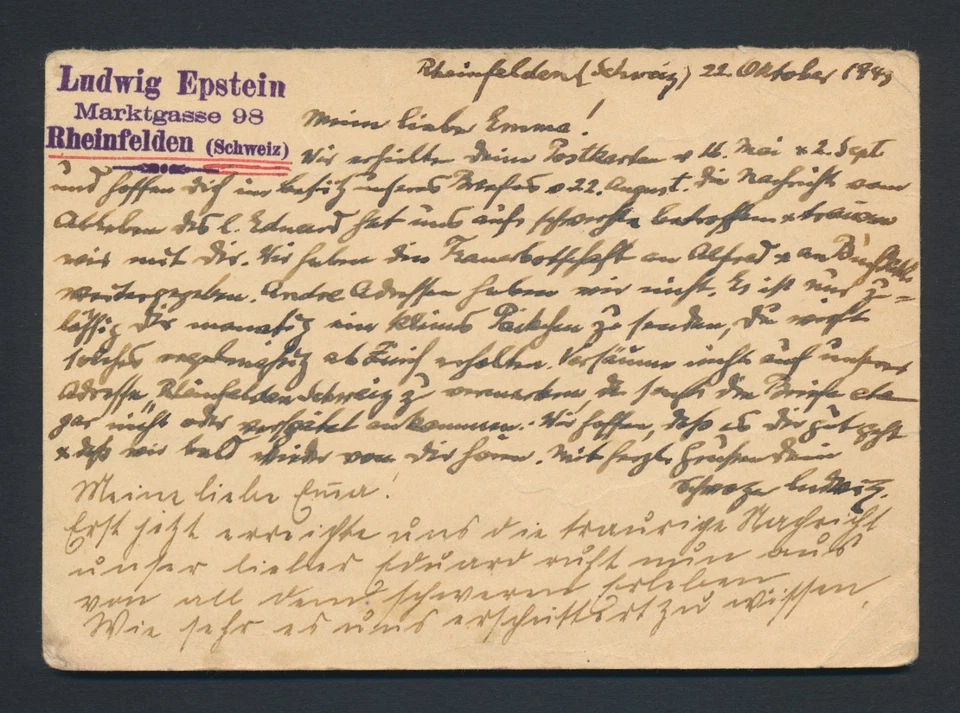 Ludwig Epstein
Marktgasse 98
Rheinfelden (Schweiz)
Rheinfelden (Schweiz) 22. Oktober 1943
Meine liebe Emma!
Wir erhielten Deine Postkarten v 16. Mai & 2. Sept
und hoffen Dich im Besitz unseres Briefes v 22. August. Die Nachricht vom
Ableben des l. Eduard hat uns aufs schwerste betroffen & trauern
wir mit Dir. Wir haben die Trauerbotschaft an Alfred & an
weitergegeben. Andre Adressen haben wir nicht. Es ist nur zu-
lässig Dir monatlich ein kleines Päckchen zu senden, Du wirst
solches regelmäßig ab Zürich erhalten. Versäume nicht auch unsere
Adresse Rheinfelden Schweiz zu vermerken, da sonst die Briefe
gar nicht oder verspätet ankommen. Wir hoffen, daß es Dir gut geht
& daß wir bald wieder von Dir hören. Mit herzl. Grüßen Dein
Schwager Ludwig.
Meine liebe Emma!
Erst jetzt erreichte uns die traurige Nachricht
unser lieber Eduard ruht nun aus
von all dem schweren Erleben
Wie sehr es uns erschüttert zu wissen,